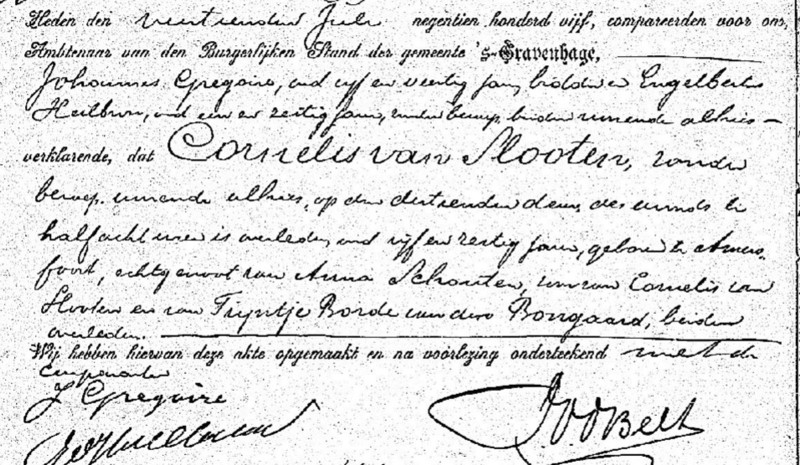 Heden den veertienden Juli negentien honderd vijf, compareerden voor ons,
Ambtenaar van den Burgerlijken Stand der gemeente 's-Gravenhage,
Johannes Gregoire, oud vijf en veertig jaar, bidder en Engelbertus
Heilbron, oud een en zestig jaar, zonder beroep, beiden wonende alhier
verklarende, dat Cornelis van Slooten, zonder
beroep, wonende alhier, op den dertienden dezer, des avonds te
half acht uren is overleden, oud vijf en zestig jaren, geboren te Amers-
foort, echtgenoot van Anna Schouten, zoon van Cornelis van
Slooten en van Trijntje Borde van den Bongaard, beiden
overleden.
Wij hebben hiervan deze akte opgemaakt en na voorlezing onderteekend met de
comparanten
J Gregoire